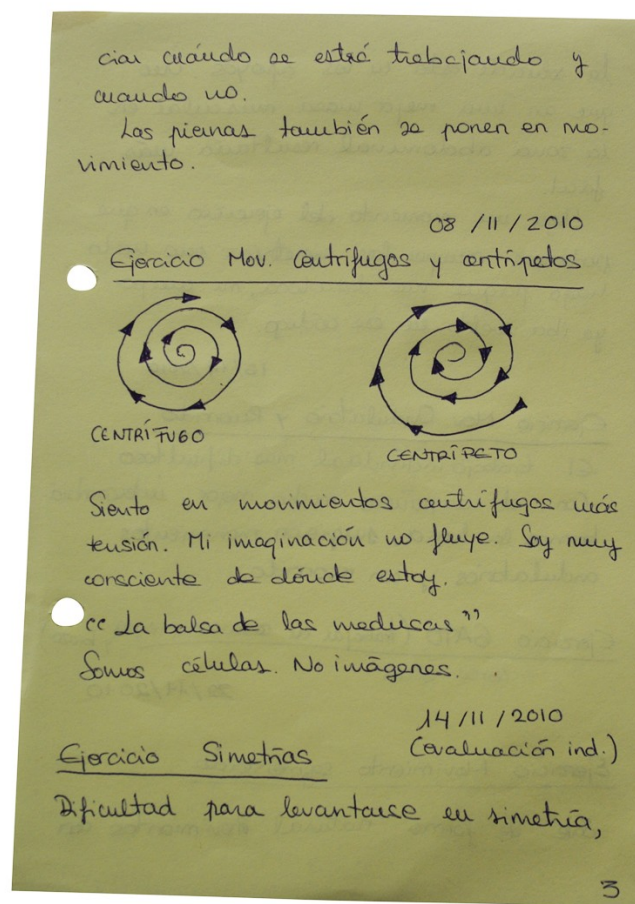 ciar cuándo se está trabajando y
cuando no.
Las piernas también se ponen en mo-
vimiento.
08/11/2010
Ejercicio Mov. Centrífugos y centrípetos
CENTRÍFUGO
CENTRÍPETO
Siento en movimientos centrífugos más
tensión. Mi imaginación no fluye. Soy muy
consciente de dónde estoy.
"La balsa de las medusas"
Somos células. No imágenes.
14/11/2010
Ejercicio Simetrías (evaluación ind.)
Dificultad para levantarse en simetría,
3